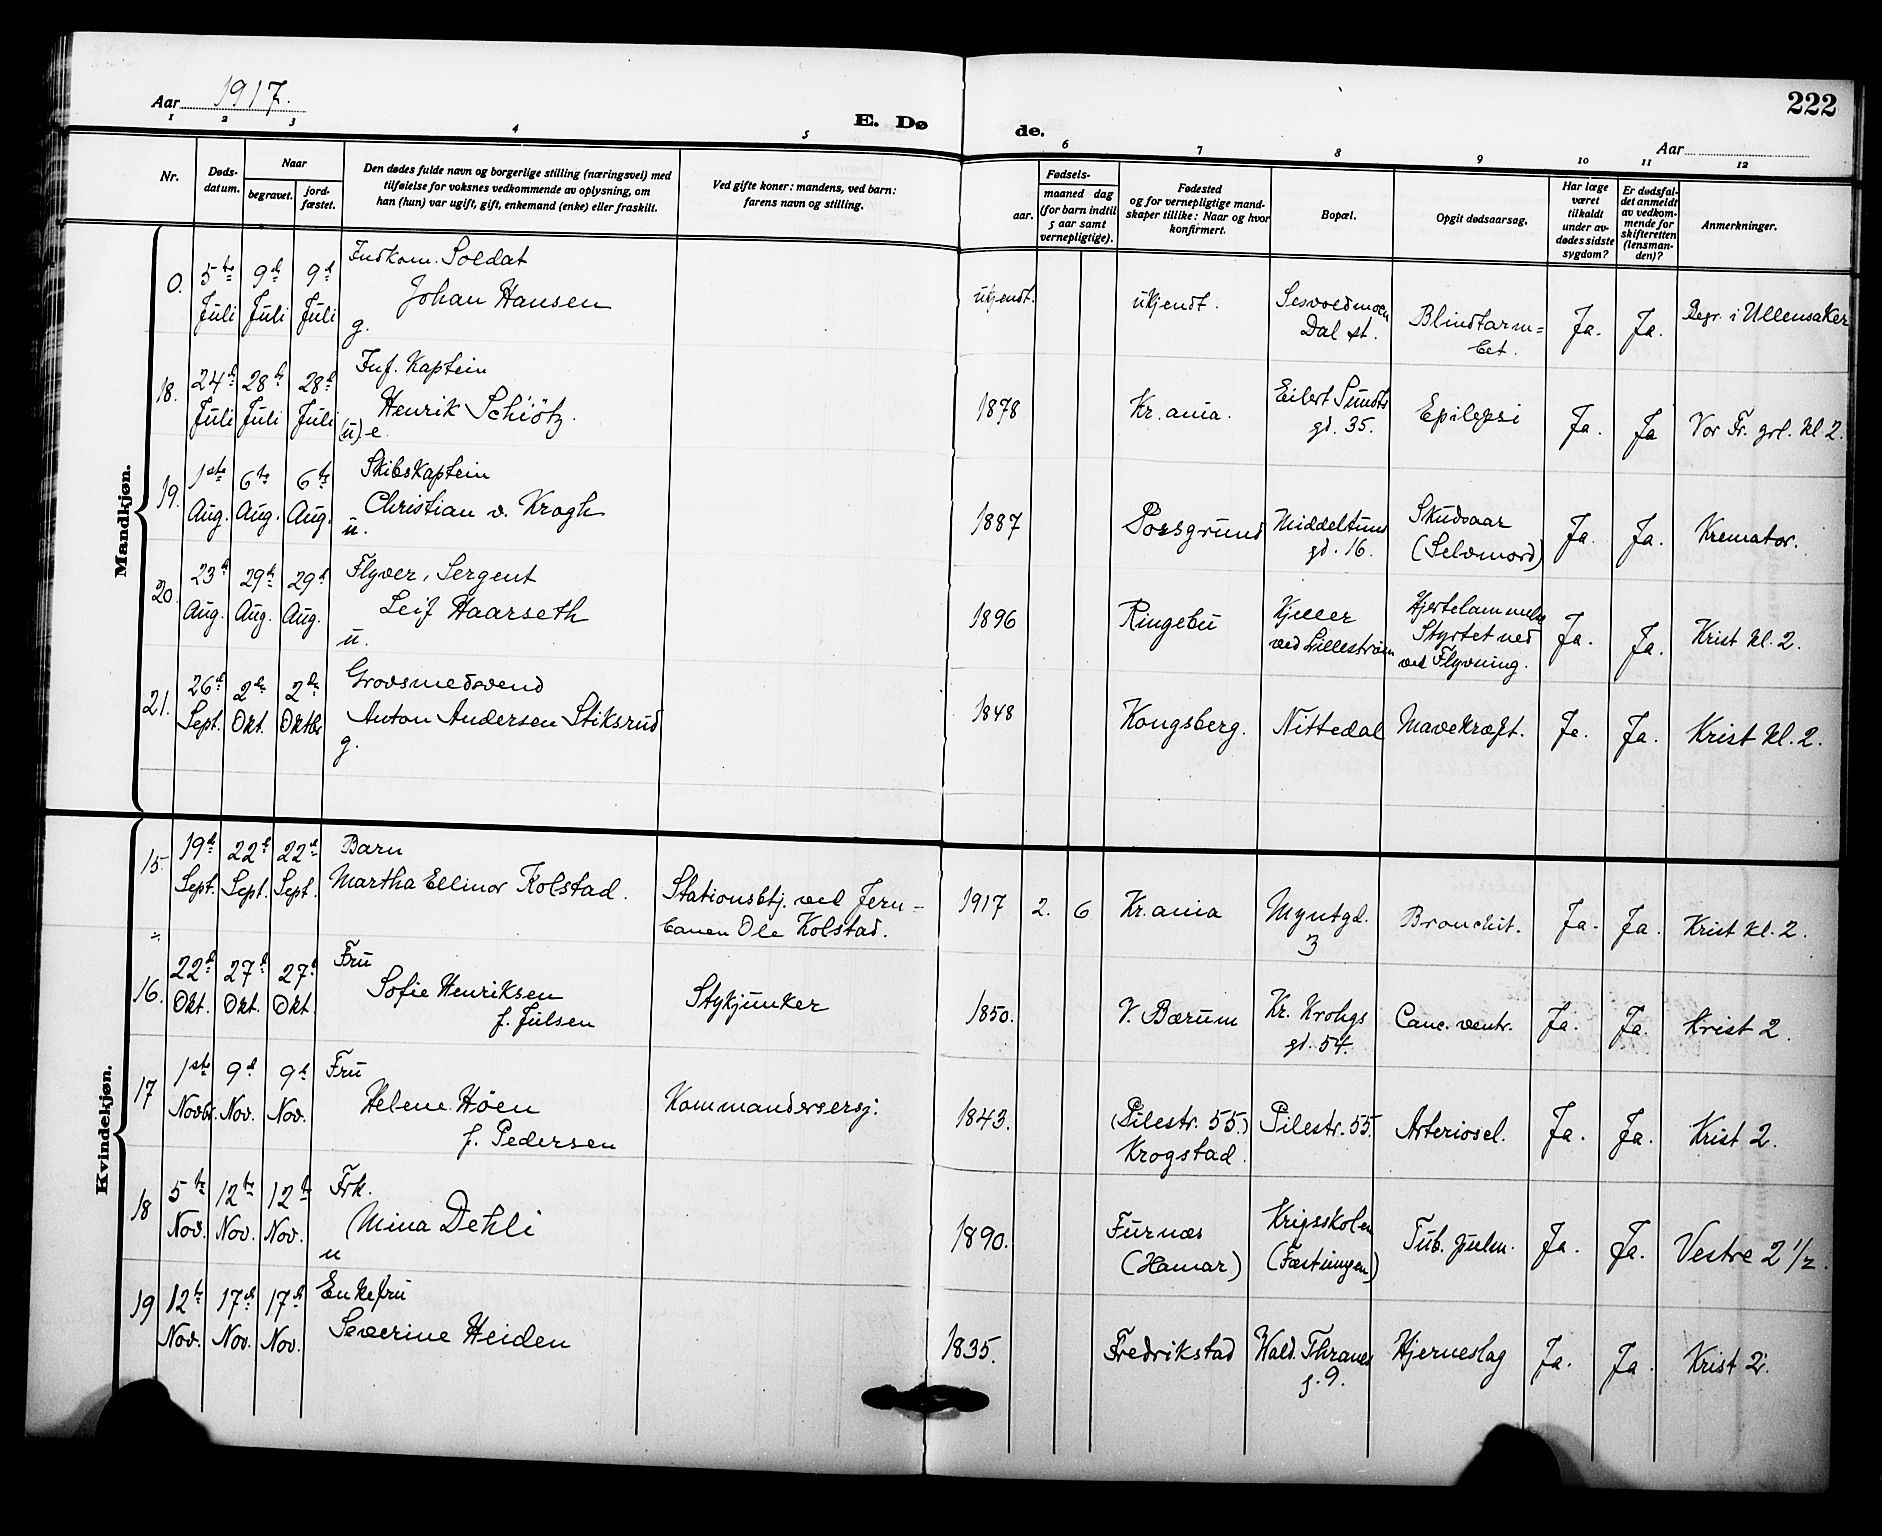 Aar 1917.
E. Døde.
222
Aar
1 2 3 4 5 6 7 8 9 10 11 12
Nr.
Døds-
datum.
Naar
begravet.
jord-
fæstet.
Den dødes fulde navn og borgerlige stilling (næringsvei) med
tilføielse for voksnes vedkommende av oplysning, om
han (hun) var ugift, gift, enkemand (enke) eller fraskilt.
Ved gifte koner: mandens, ved barn:
farens navn og stilling.
Fødsels-
aar.
maaned dag
(for barn indtil
5 aar samt
vernepligtige).
Fødested
og for vernepligtige mand-
skaper tillike: Naar og hvor
konfirmert.
Bopæl.
Opgit dødsaarsag.
Har læge
været
tilkaldt
under av-
dødes sidste
sygdom?
Er dødsfal-
det anmeldt
av vedkom-
mende for
skifteretten
(lensman-
den)?
Anmerkninger.
Mandkjøn.
0. 5te Juli 9d Juli 9d Juli
Indkom. Soldat
Johan Hansen
g.
ukjendt. ukjendt.
Sesvoldmoen
Dal st.
Blindtarm=
bet.
Ja. Ja. Begr. i Ullensaker
18. 24d Juli 28d Juli 28d Juli
Inf. Kaptein
Henrik Schiötz.
(u) e.
1878 Kr.ania.
Eilert Sundts
gd. 35.
Epilepsi Ja. Ja Vor Fr. grl. kl. 2.
19. 1ste Aug. 6te Aug. 6te Aug.
Skibskaptein
Christian v. Krogh
u.
1887 Porsgrund
Middeltuns
gd. 16.
Skudsaar
(Selvmord)
Ja. Ja. Kremator.
20. 23d Aug. 29d Aug. 29d Aug.
Flyver, Sergent
Leif Haarseth
u.
1896 Ringebu
Kjeller
ved Lillestrøm
Hjertelammelse
Styrtet ned
ved Flyvning.
Ja. Ja. Krist kl. 2.
21. 26d Sept. 2den Okt. 2den Oktbr
Grovsmedsvend
Anton Andersen Stiksrud
g.
1848 Kongsberg. Nittedal Mavekræft. Ja. Ja. Krist kl. 2.
Kvindekjøn.
15. 19d Sept. 22d Sept. 22d Sept.
Barn
Martha Ellinor Kolstad.
Stationsbtj. ved Jern-
banen Ole Kolstad.
1917 2. 6 Kr.ania
Myntgd.
3
Bronchit. Ja. Ja. Krist kl. 2.
16. 22d Okt. 27d Okt. 27d Okt.
Fru
Sofie Henriksen
f. Julsen
Stykjunker
1850. V. Bærum
Kr. Krohgs
gd. 54.
Canc. ventr. Ja. Ja. Krist 2.
17 1ste Novbr. 9d Nov. 9d Nov.
Fru
Helene Høen
f. Pedersen
Kommandersersj.
1843.
(Pilestr. 55.)
Krogstad.
Pilestr. 55. Arterioscl. Ja. Ja. Krist 2.
18 5te Nov. 12te Nov. 12te Nov.
Frk.
Mina Dehli
u
1890.
Furnæs
(Hamar)
Krigsskolen
(Fæstningen)
Tub. pulm. Ja. Ja. Vestre 2 1/2.
19 12te Nov. 17d Nov. 17d Nov.
Enkefru
Severine Heiden
1835. Fredrikstad
Wald. Thranes
g. 9.
Hjerneslag Ja. Ja. Krist 2.